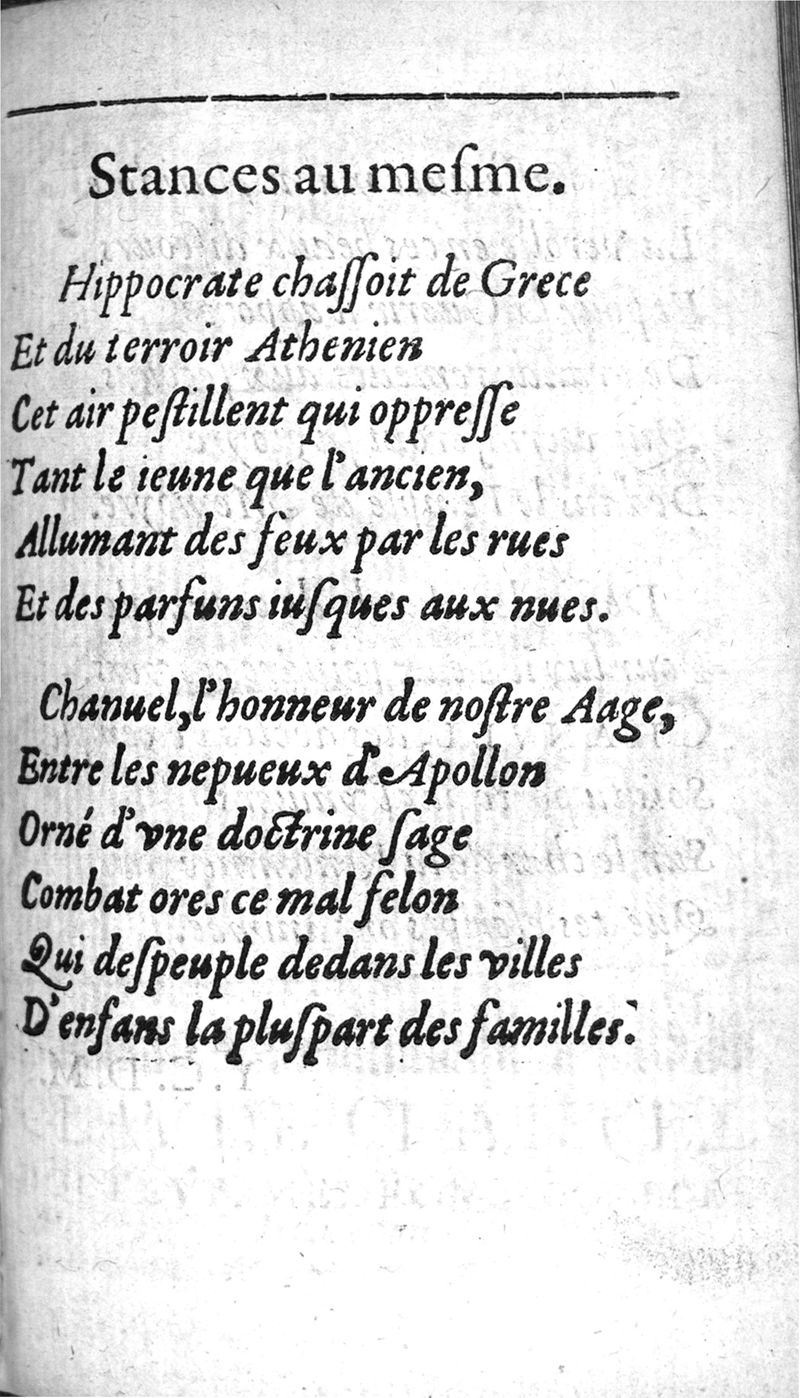 Stances au meſme.
Hippocrate chaſſoit de Grece
Et du terroir Athenien
Cet air peſtillent qui oppreſſe
Tant le ieune que l'ancien,
Allumant des feux par les rues
Et des parfuns iuſques aux nues.
Chanuel, l'honneur de noſtre Aage,
Entre les nepueux d'Apollon
Orné d'vne doctrine ſage
Combat ores ce mal felon
Qui deſpeuple dedans les villes
D'enfans la pluſpart des familles.